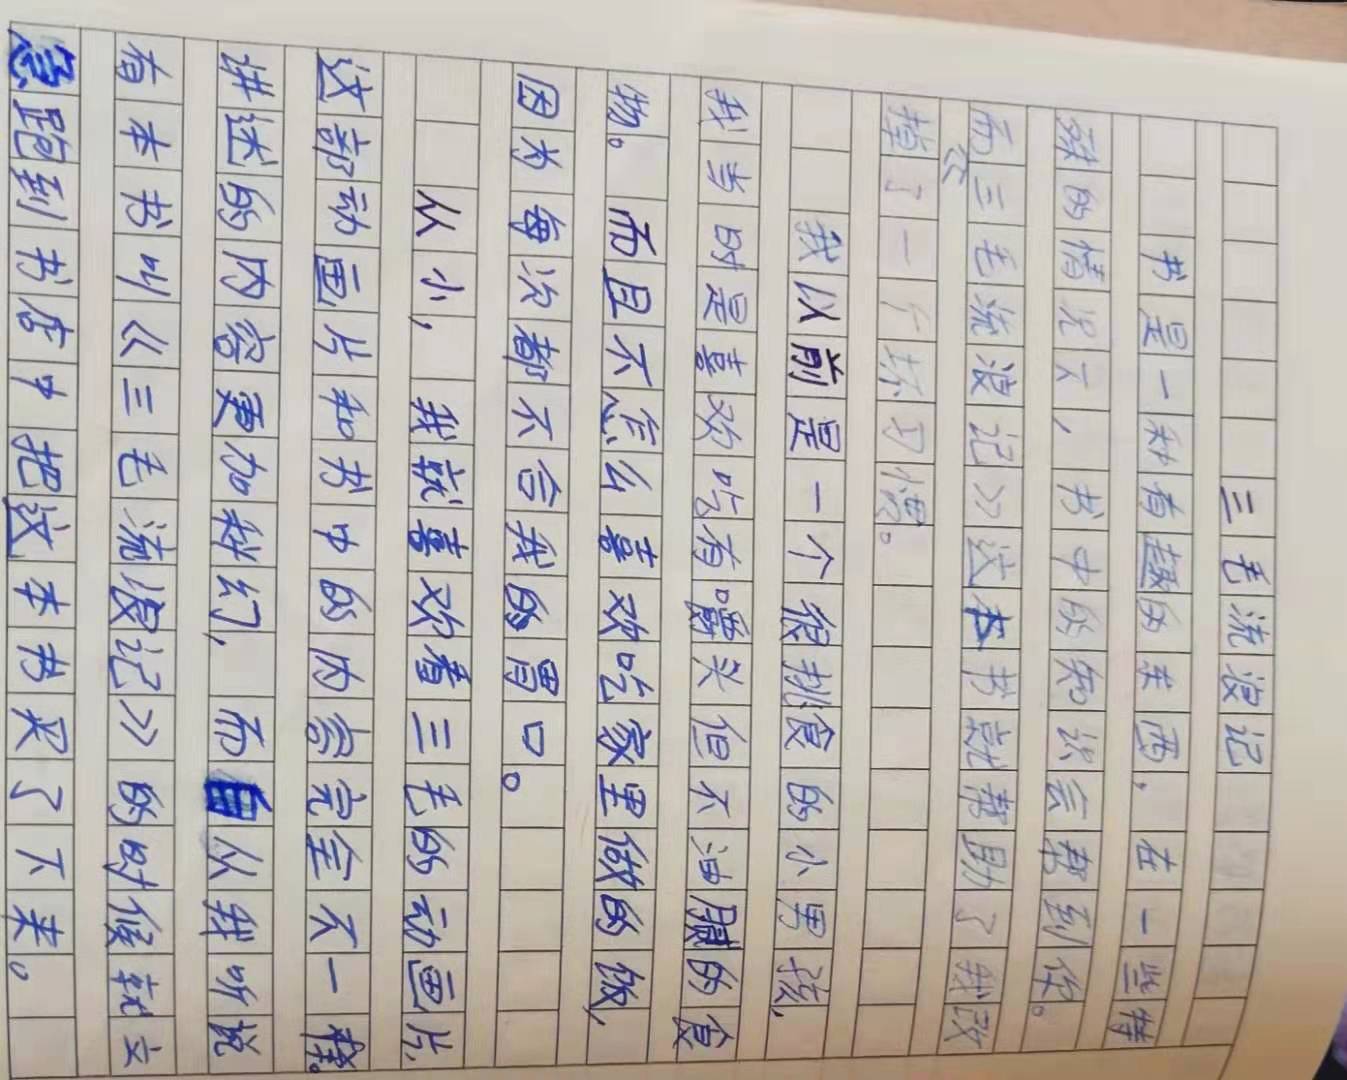 三毛流浪记
书是一种有趣的东西，在一些特
殊的情况下，书中的知识会帮到你。
而《三毛流浪记》这本书就帮助了我改
掉了一个坏习惯。
我以前是一个很挑食的小男孩，
我当时是喜欢吃有嚼头但不油腻的食
物。而且不怎么喜欢吃家里做的饭，
因为每次都不合我的胃口。
从小，我就喜欢看三毛的动画片，
这部动画片和书中的内容完全不一样。
讲述的内容更加科幻，而自从我听说
有本书叫《三毛流浪记》的时候就立
急跑到书店中把这本书买了下来。